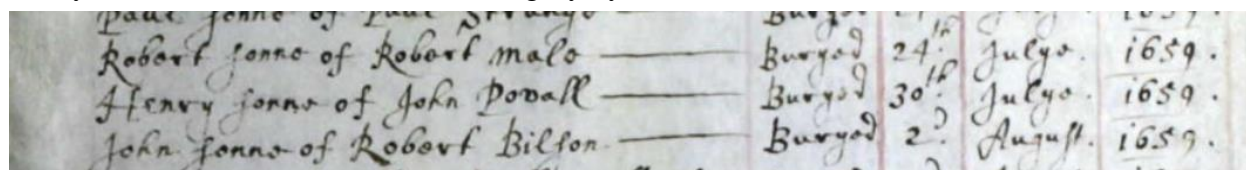 Paul sonne of Paul Strange Buryed 1659.
Robert sonne of Robert Male Buryed 24th. Julye. 1659.
Henry sonne of John Povall Buryed 30th. Julye. 1659.
John sonne of Robert Bilson Buryed 2d. August. 1659.